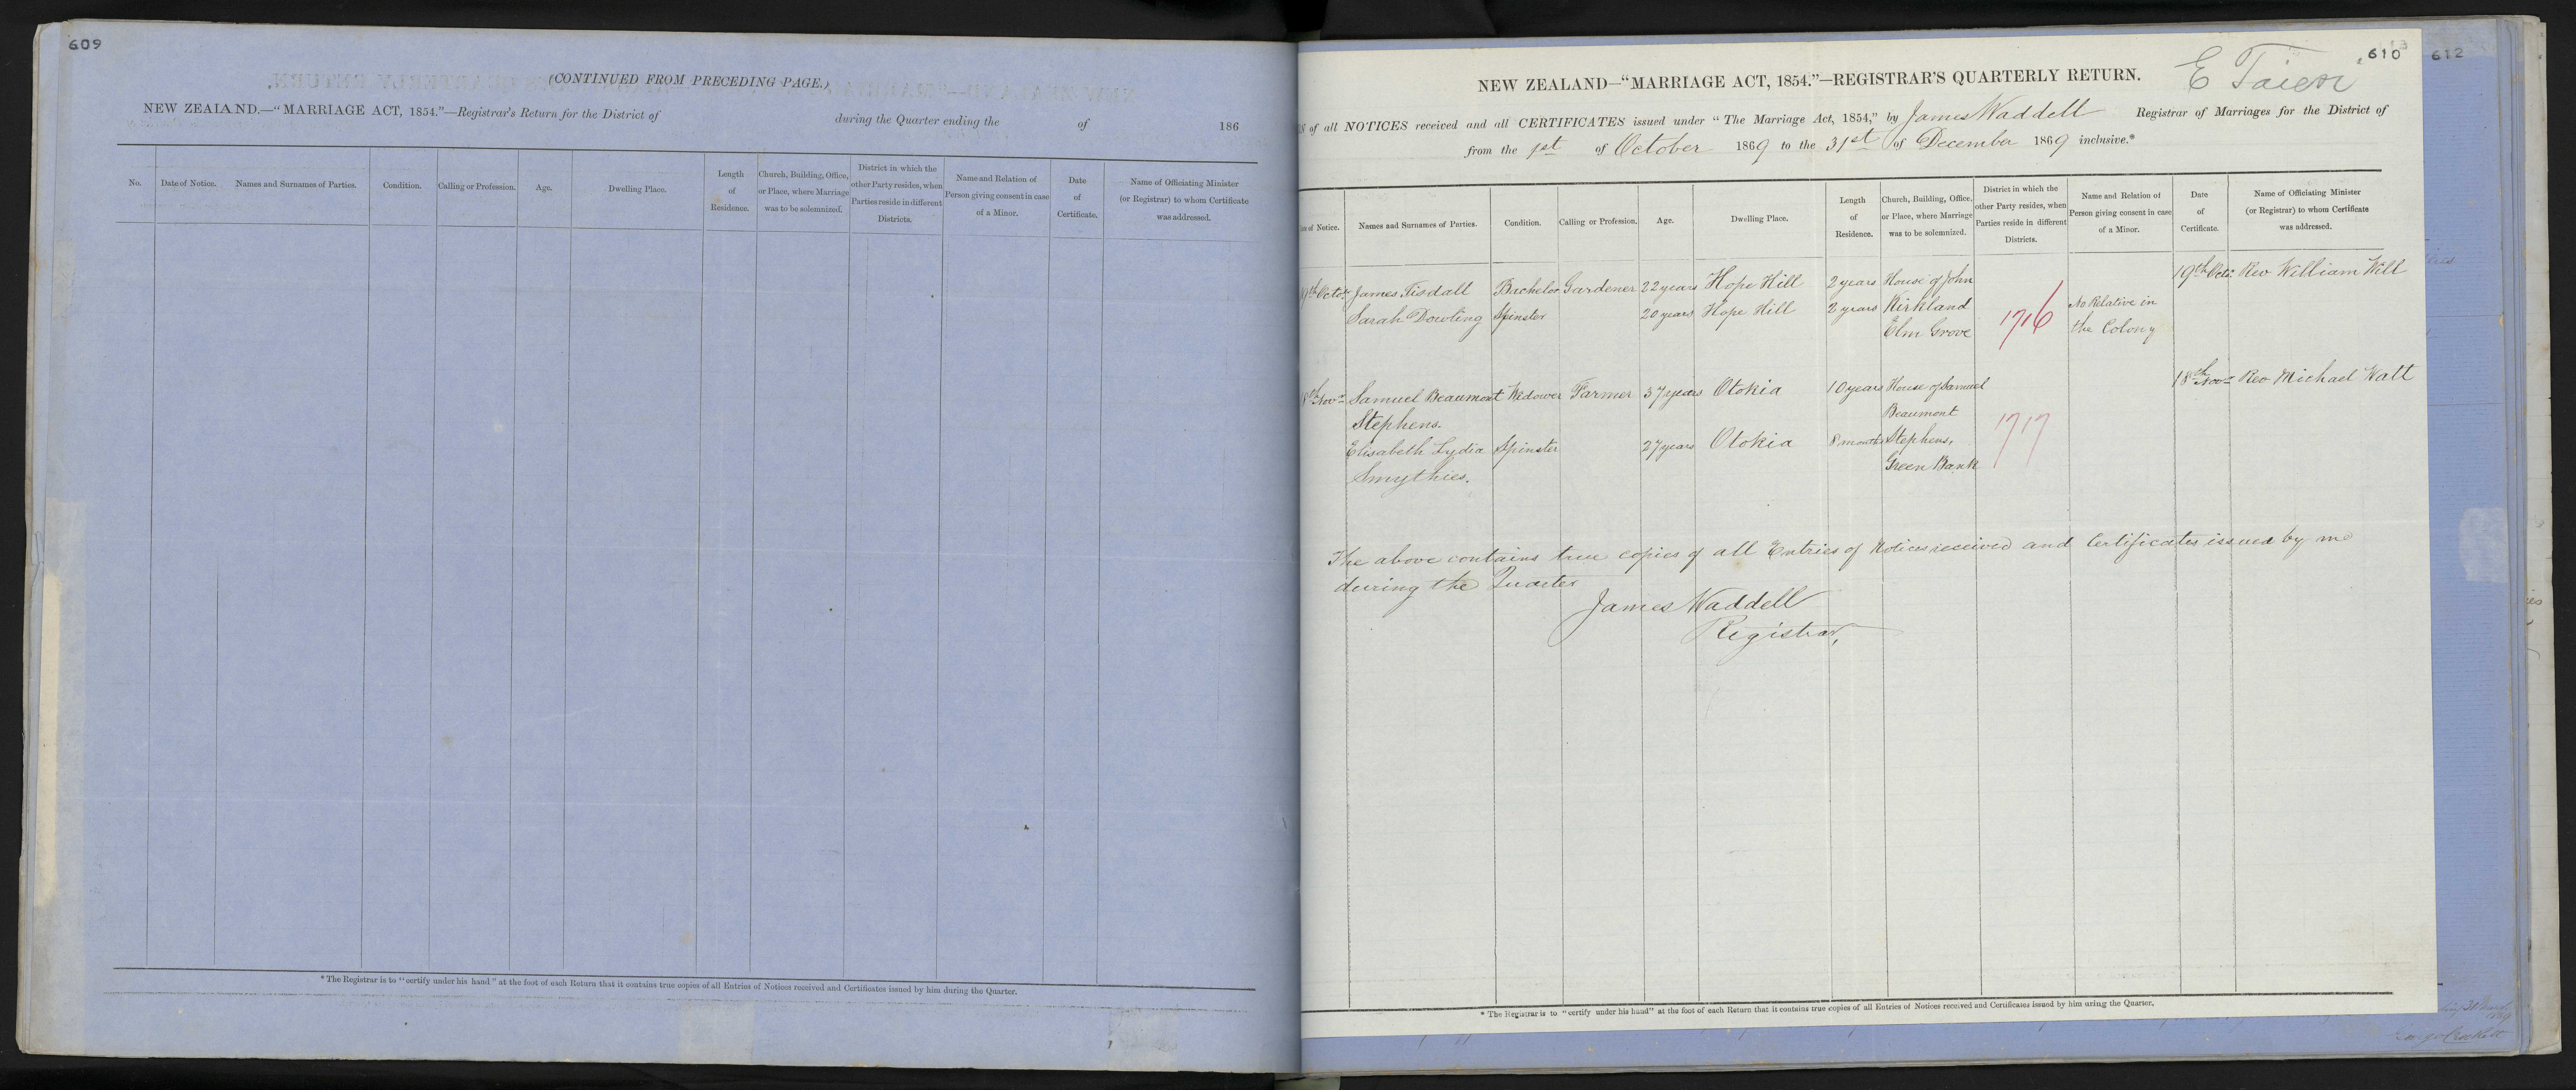 609
(CONTINUED FROM PRECEDING PAGE.)
NEW ZEALAND.—“MARRIAGE ACT, 1854.”—Registrar's Return for the District of during the Quarter ending the of 186
No. Date of Notice. Names and Surnames of Parties. Condition. Calling or Profession. Age. Dwelling Place. Length of Residence. Church, Building, Office, or Place, where Marriage was to be solemnized. District in which the other Party resides, when Parties reside in different Districts. Name and Relation of Person giving consent in case of a Minor. Date of Certificate. Name of Officiating Minister (or Registrar) to whom Certificate was addressed.
* The Registrar is to “certify under his hand” at the foot of each Return that it contains true copies of all Entries of Notices received and Certificates issued by him during the Quarter.
610
612
E Taieri
NEW ZEALAND—“MARRIAGE ACT, 1854.”—REGISTRAR'S QUARTERLY RETURN.
of all NOTICES received and all CERTIFICATES issued under “The Marriage Act, 1854,” by James Waddell Registrar of Marriages for the District of
from the 1st of October 1869 to the 31st of December 1869 inclusive.*
of Notice. Names and Surnames of Parties. Condition. Calling or Profession. Age. Dwelling Place. Length of Residence. Church, Building, Office, or Place, where Marriage was to be solemnized. District in which the other Party resides, when Parties reside in different Districts. Name and Relation of Person giving consent in case of a Minor. Date of Certificate. Name of Officiating Minister (or Registrar) to whom Certificate was addressed.
19th Octr. James Tisdall Bachelor Gardener 22 years Hope Hill 2 years House of John 19th Octr. Rev William Will
Sarah Dowling Spinster 20 years Hope Hill 2 years Kirkland 1716 No Relative in
Elm Grove the Colony
18th Novr Samuel Beaumont Widower Farmer 37 years Otokia 10 years House of Samuel 18th Novr Rev Michael Watt
Stephens. Beaumont
Elisabeth Lydia Spinster 27 years Otokia 8 months Stephens, 1717
Smythies. Green Bank
The above contains true copies of all Entries of Notices received and Certificates issued by me
during the Quarter
James Waddell
Registrar,
* The Registrar is to “certify under his hand” at the foot of each Return that it contains true copies of all Entries of Notices received and Certificates issued by him uring the Quarter.